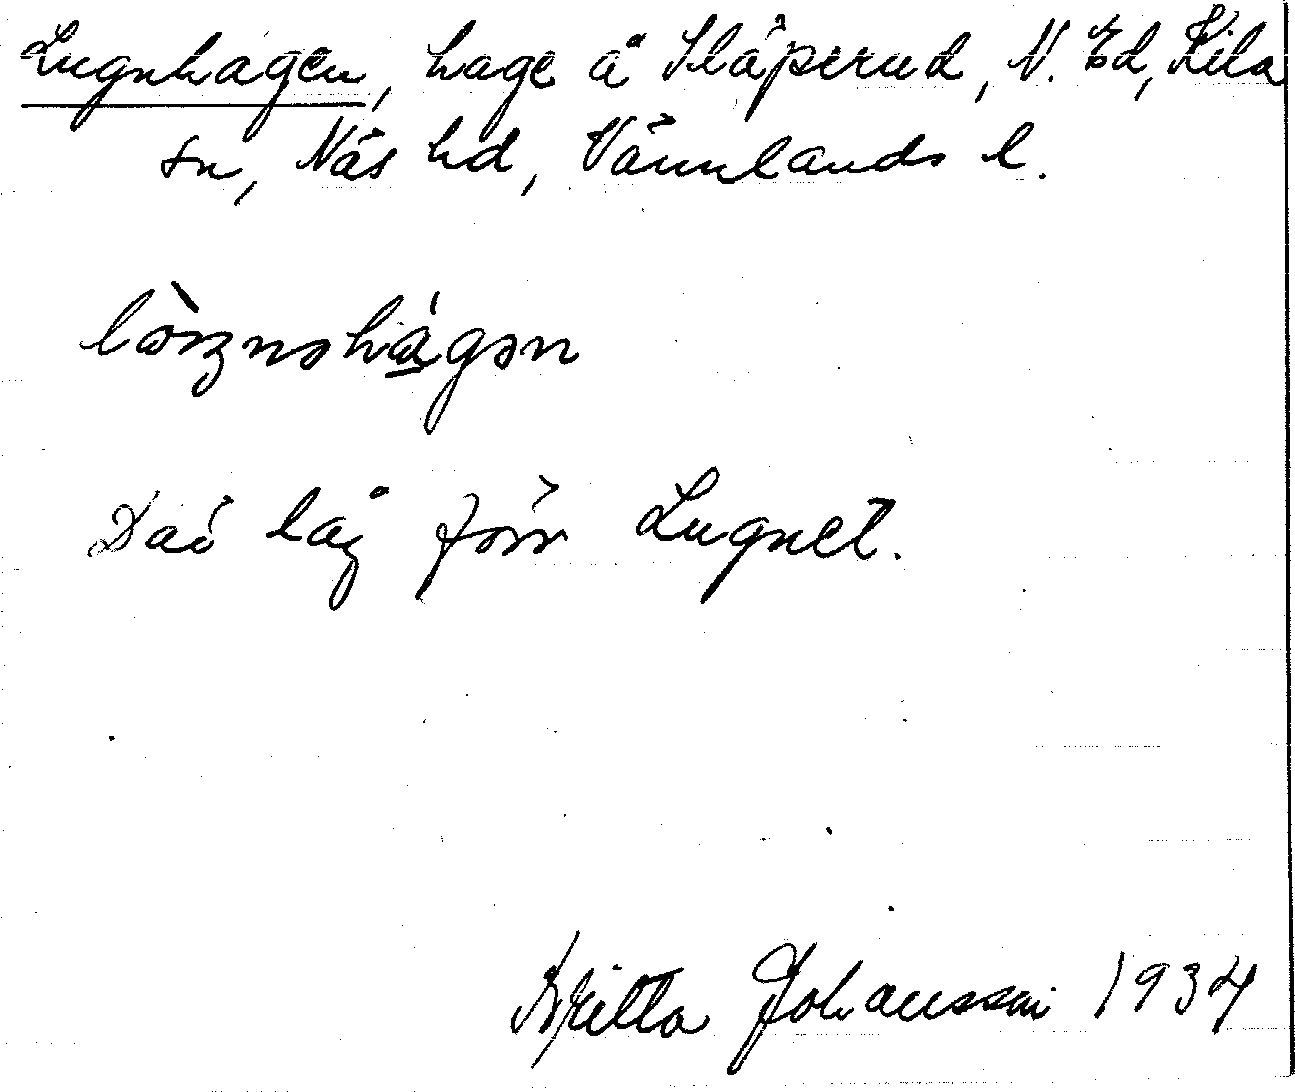 Lugnhagen, hage å Släperud, N. Ed, Kila
sn, Näs hd, Värmlands l.
Där låg förr Lugnet.
Britta Johansson 1934